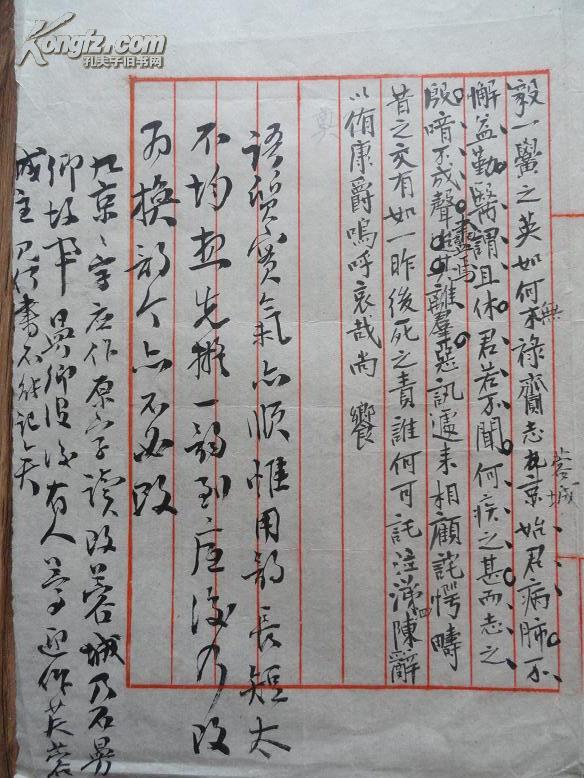 毅一黌之英如何不祿齎志九京始君病肺不
無
蓉城
懈益勤醫謂且休君若不聞何疾之甚而志之
殷喑不成聲離羣惡訊遽来相顧詫愕疇
昔之交有如一昨後死之責誰何可託泣涕陳辭
以侑康爵嗚呼哀哉尚饗
奠
語質實氣亦順惟用韵長短太
不均匀先擬一韵到底後乃改
为换韵今亦不必改
九京之字应作原字讀改蓉城乃石曼
卿故事曼卿没後有人夢迎作芙蓉
城主见何書不能記矣
Kongfz.com
孔夫子旧书网